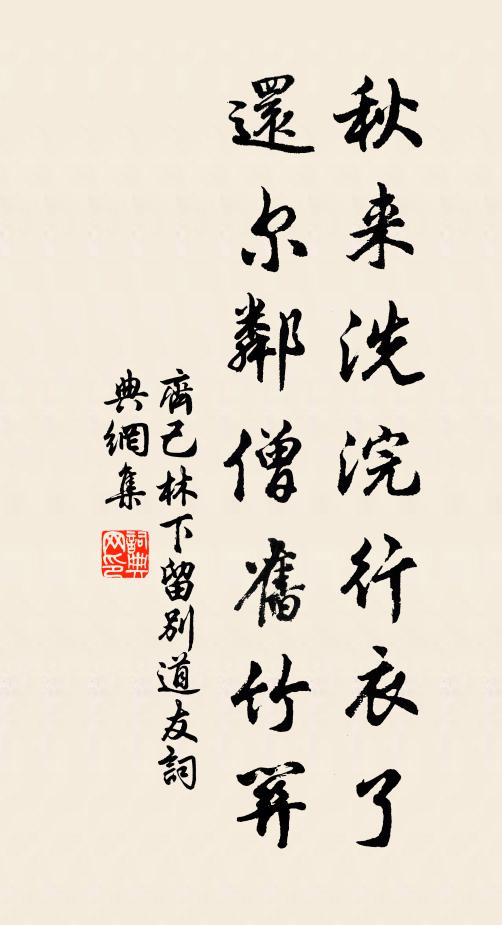 秋来洗浣行衣了
還尔鄰僧舊竹關
齊己林下留别道友詞
典網集
詞典
网印